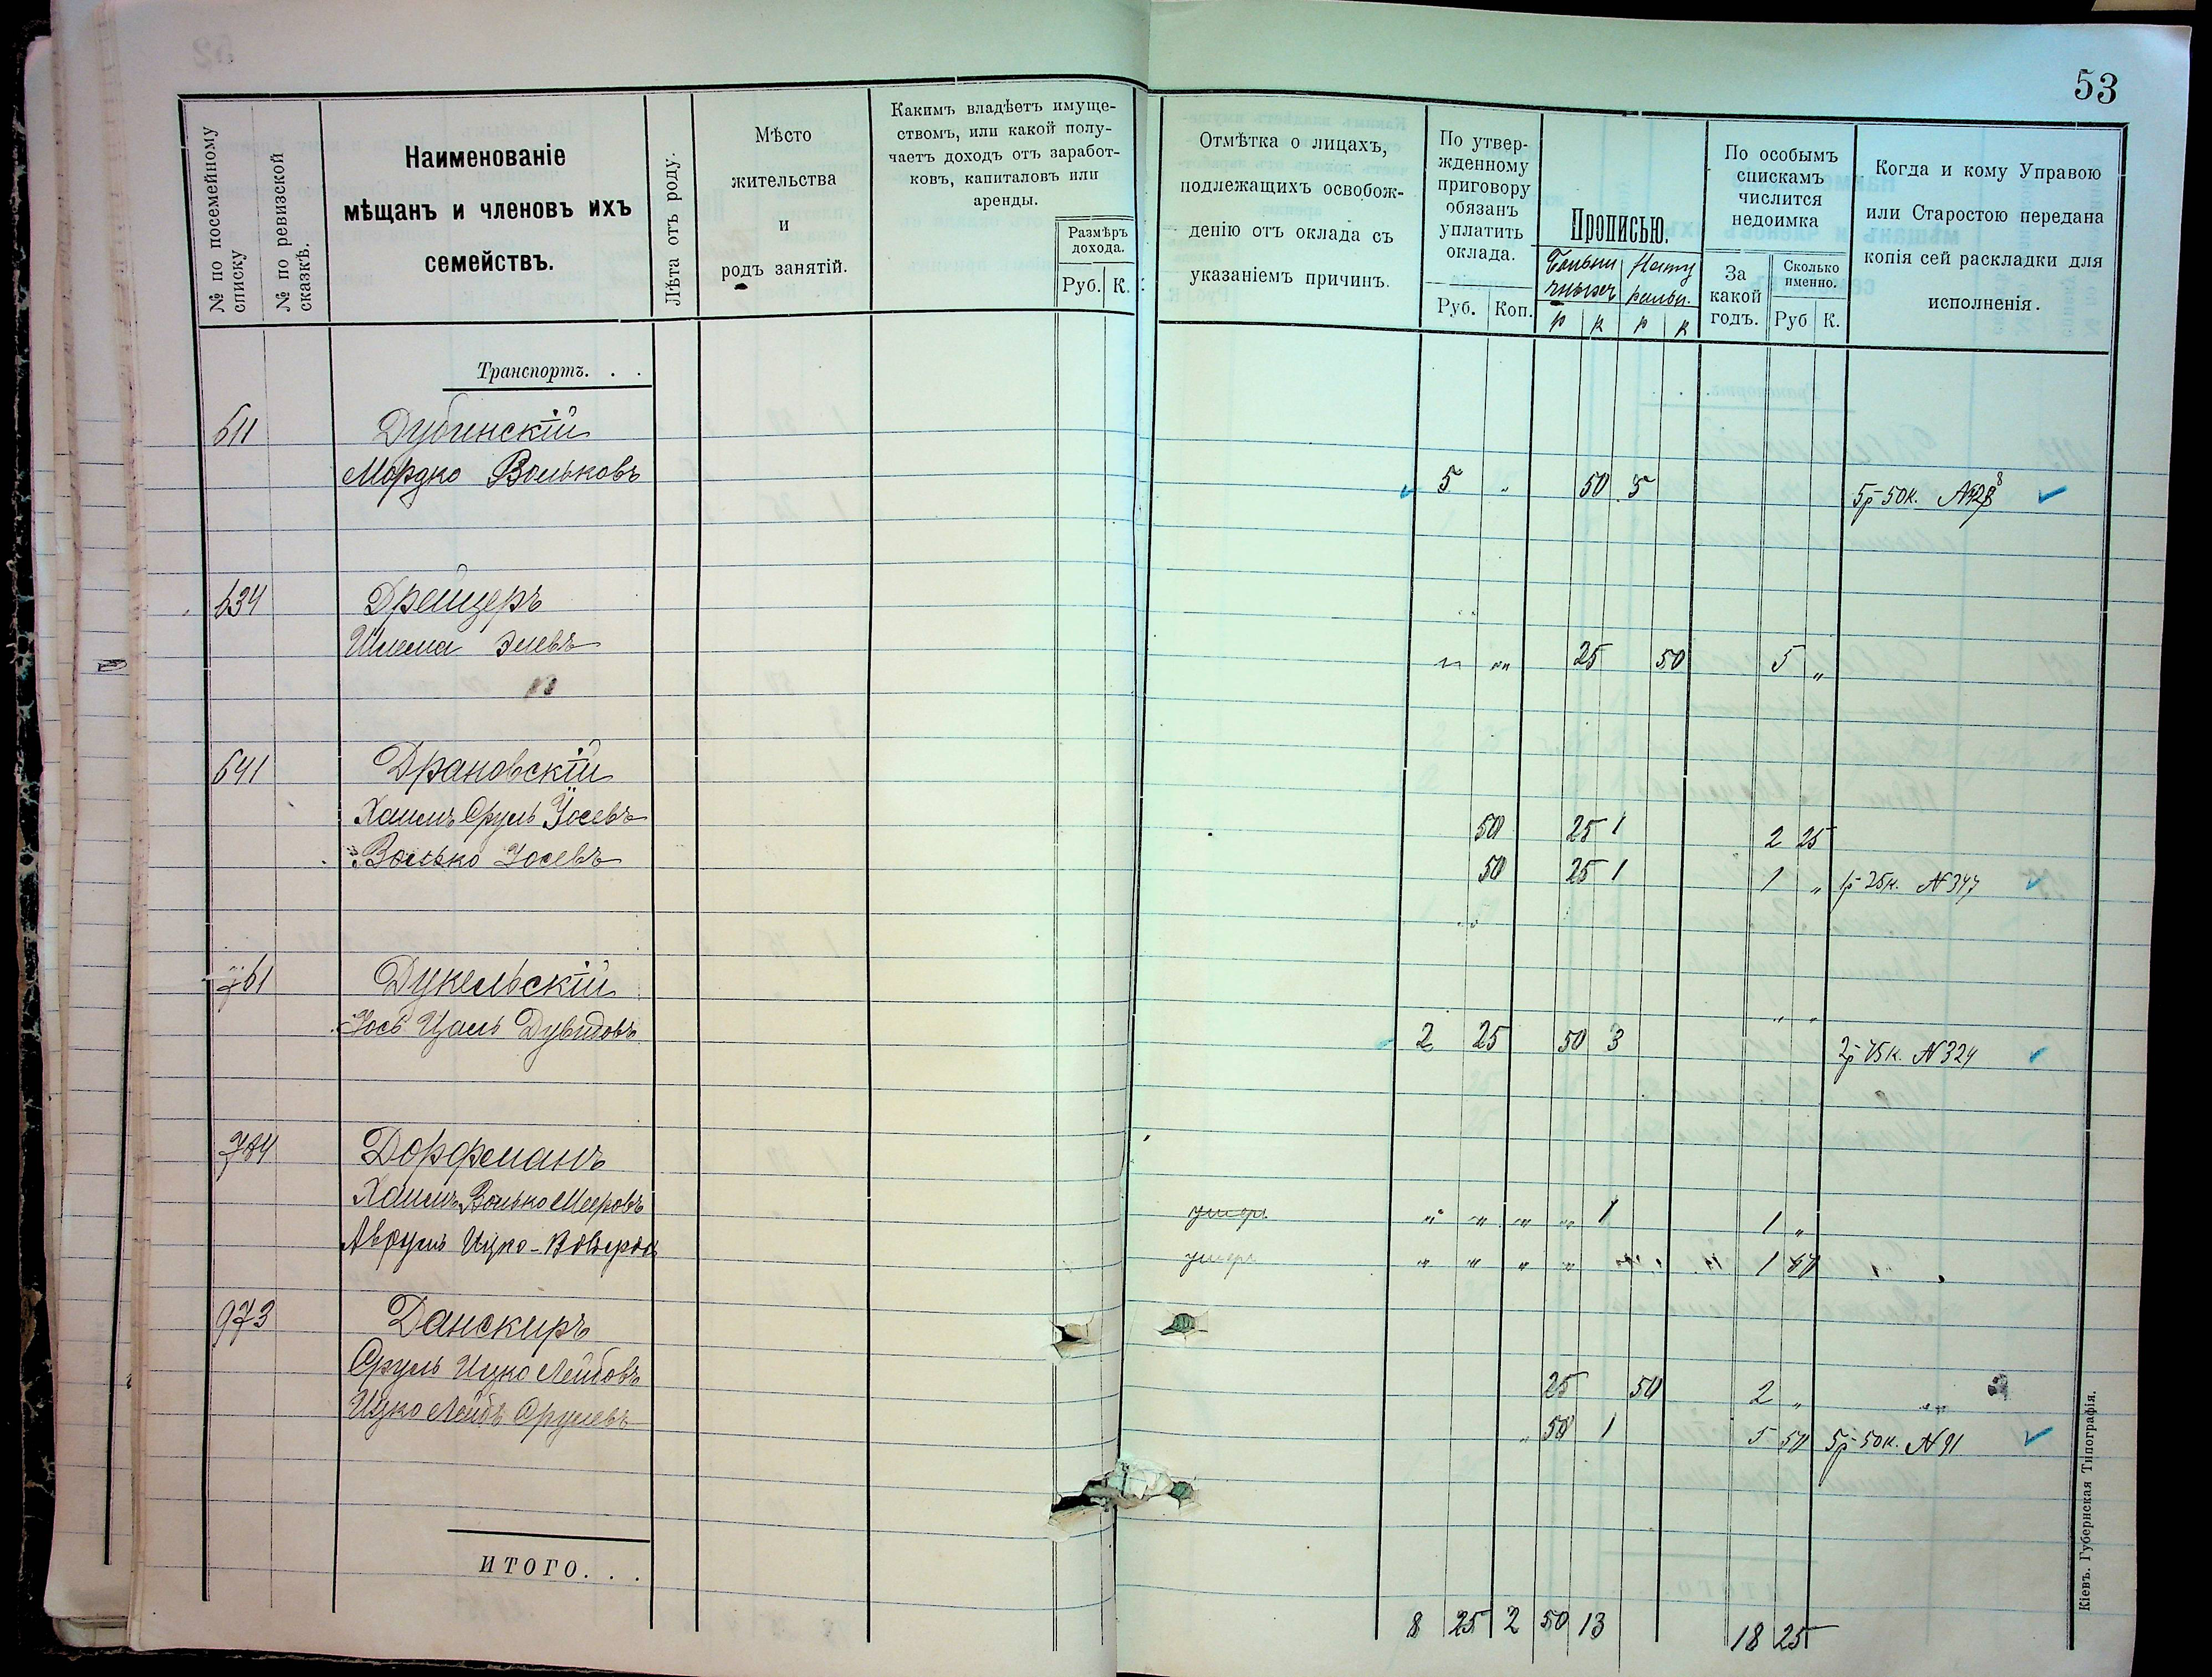 53
№ по посемейному списку
№ по ревизской сказкѣ.
Наименованіе
мѣщанъ и членовъ ихъ
семействъ.
Лѣта отъ роду.
Мѣсто
жительства
и
родъ занятій.
Какимъ владѣетъ имуще-
ствомъ, или какой полу-
чаетъ доходъ отъ заработ-
ковъ, капиталовъ или
аренды.
Размѣръ
дохода.
Руб. К.
Отмѣтка о лицахъ,
подлежащихъ освобож-
денію отъ оклада съ
указаніемъ причинъ.
По утвер-
жденному
приговору
обязанъ
уплатить
оклада.
Руб. Коп.
Прописью.
р к р к
По особымъ
спискамъ
числится
недоимка
За
какой
годъ.
Сколько
именно.
Руб К.
Когда и кому Управою
или Старостою передана
копія сей раскладки для
исполненія.
Транспортъ. . .
611 Дубинскій
Мордко Вольковъ 5 " 50 5 5р 50к.
634 Дрейцеръ
Шлема Элевъ " " 25 50 5 "
641 Драновскій
Хаимъ Сруль Іосевъ 50 25 1 2 25
Волько Іосевъ 50 25 1 1 " 1р 25к. № 347
761 Дукельскій
Іось Цаль Дувидовъ 2 25 50 3 2р 75к. № 324
784 Дорфманъ
Хаимъ Волько Мееровъ умеръ " " " " 1 1 "
Аврумъ Ицко- умеръ " " " " 1
973 Данскиръ
Сруль Ицко Лейбовъ 25 50 2 "
Ицко Лейбъ Срулевъ " 50 1 5 50 5р 50к. № 91
ИТОГО. . .
8 25 2 50 13 18 25
Кіевъ. Губернская Типографія.